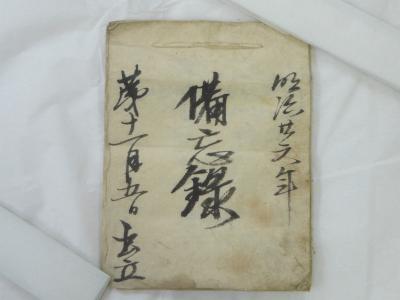 明治廿六年
備忘録
第十一月五日